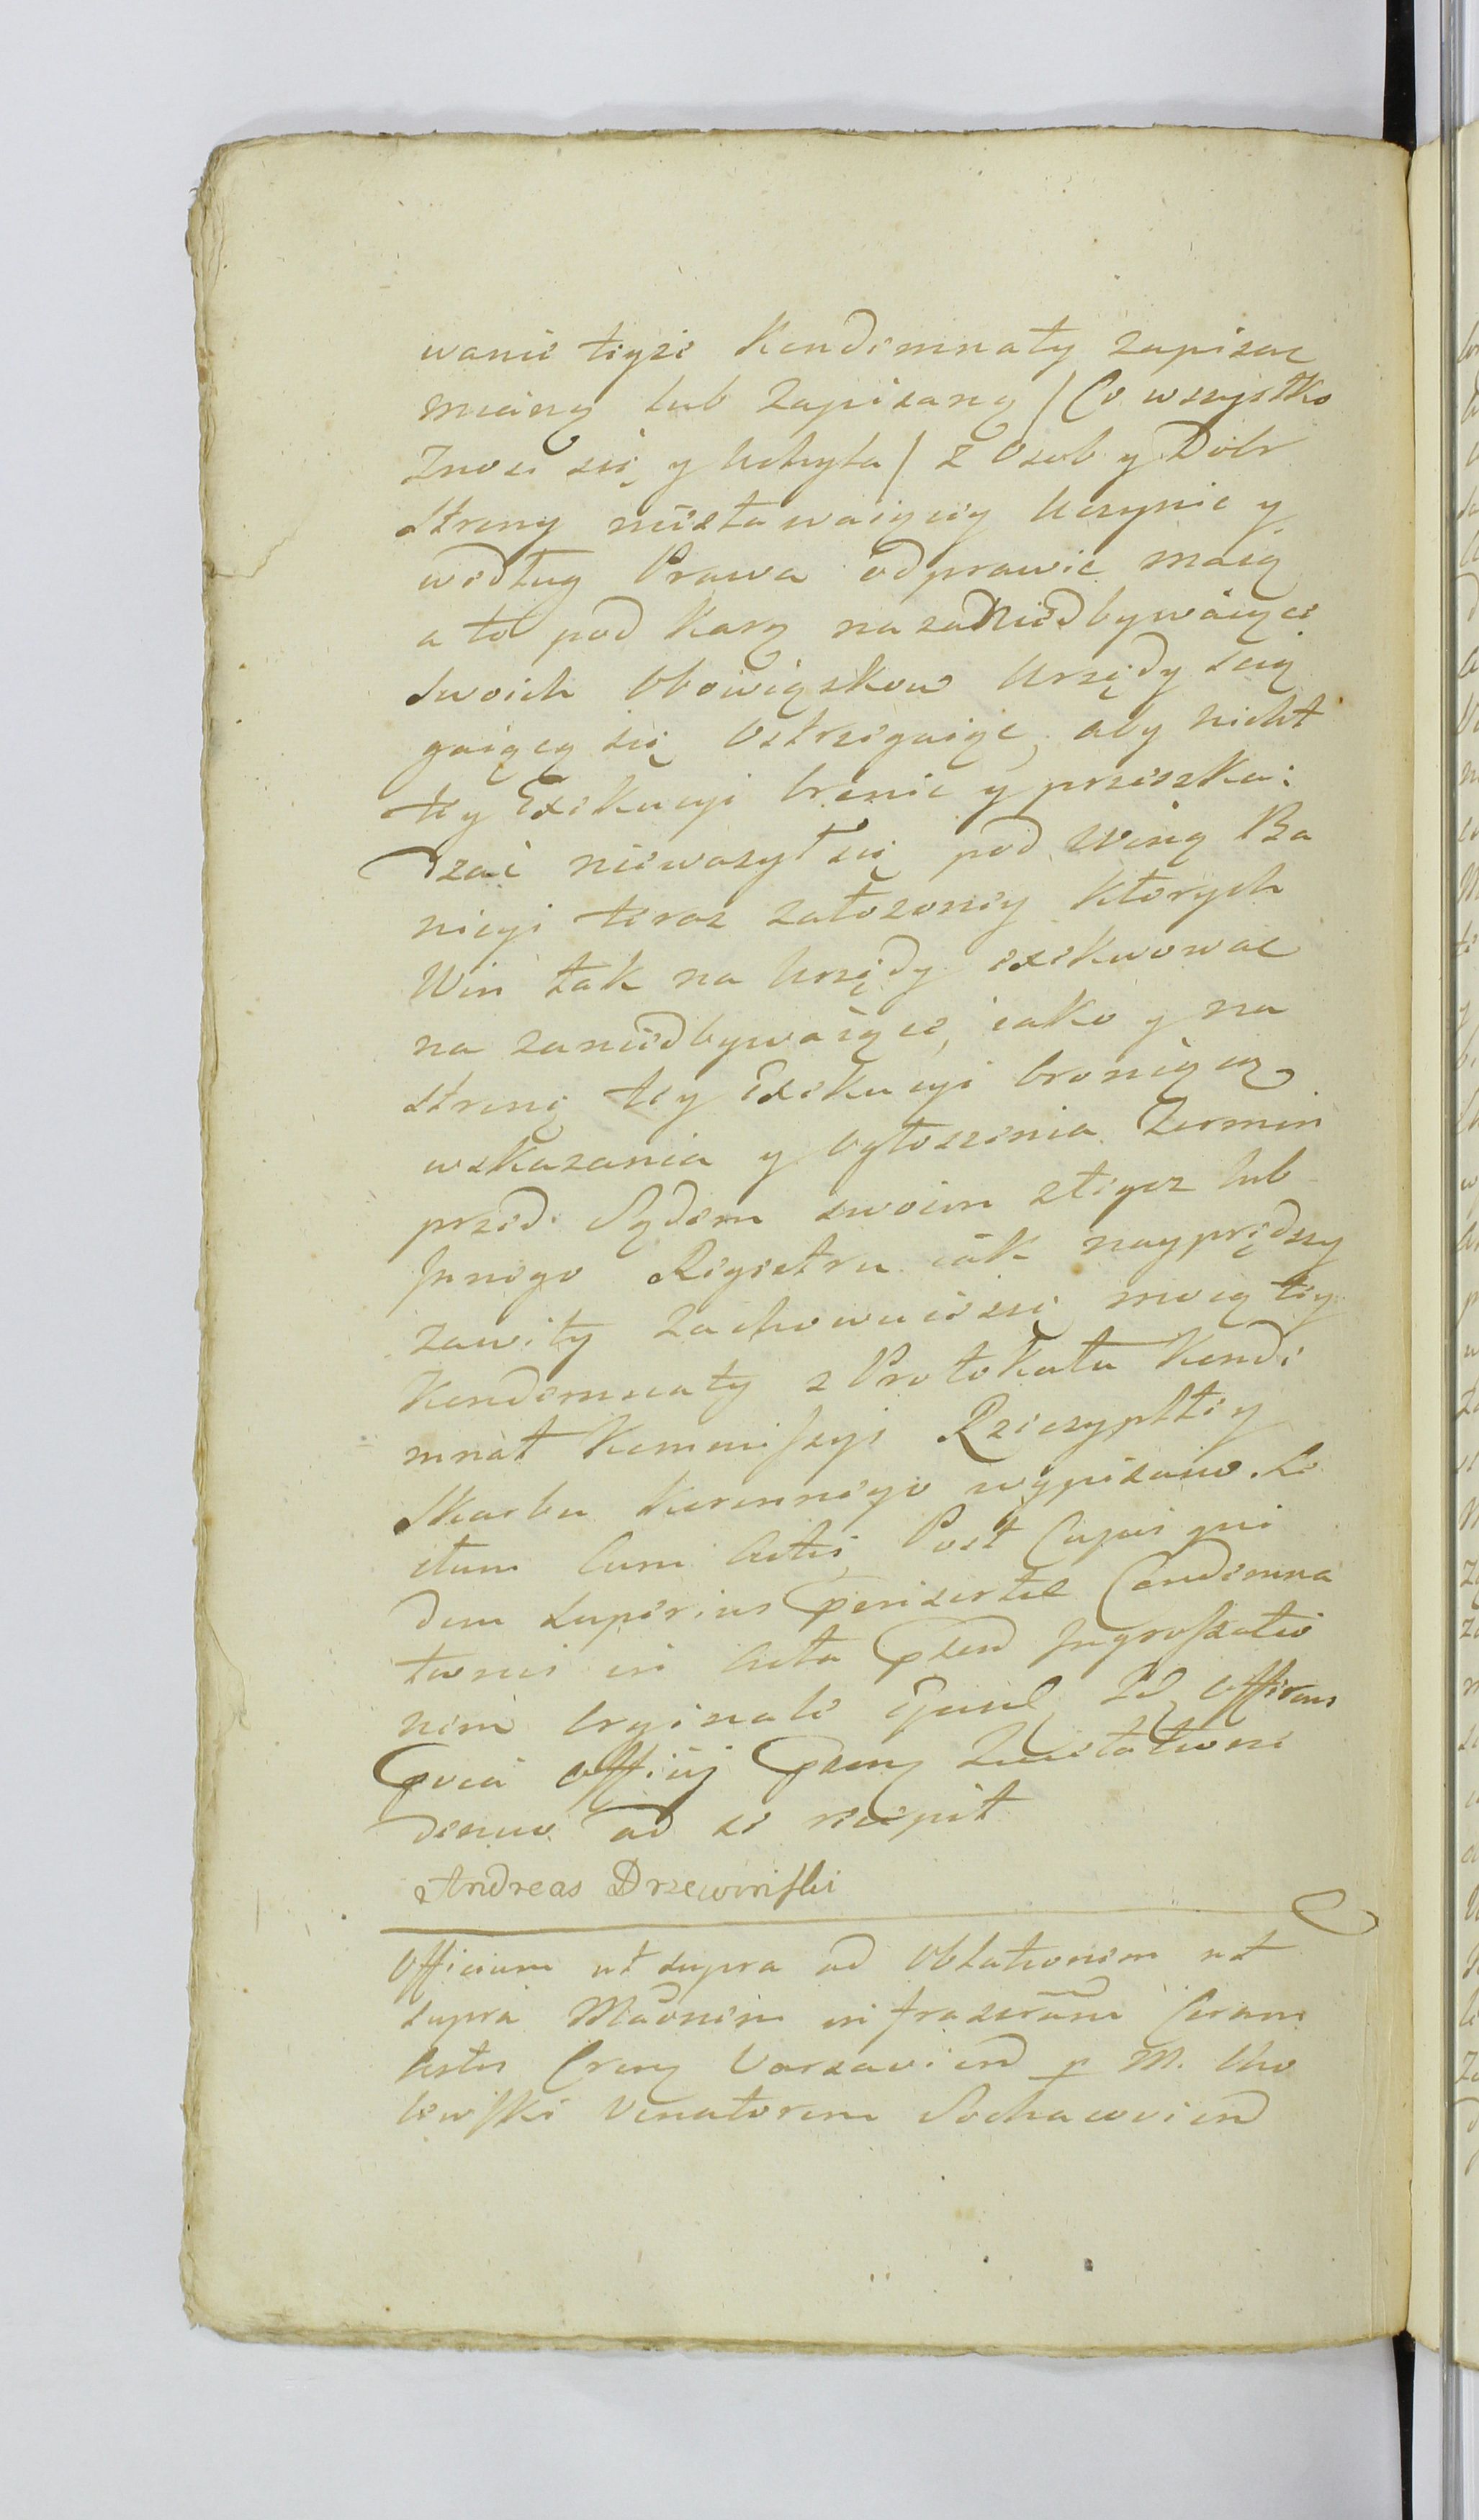 wanie teyże Kondemnaty zapisac
mianą lub zapisaną / Co wszystko
Znosi się y Uchyla / z Osob y Dobr
Strony niestawaiącey Uczynic y
według Prawa odprawic maią
a to pod Karą na zaniedbywaiące
Swoich Obowiązkow Urzędy scią
gaiącą się, Ostrzegaiąc, aby nicht
tey Exekucyi bronic y przeszka:
dzać nieważył się pod Winą Ba
nicyi teraz założoney Ktorych
Win tak na Urzędy exekwowac
na zaniedbywaiące, iako y na
stronę tey Exekucyi broniącą
wskazania y ogłoszenia Termin
przed Sądem swoim z tegoż lub
Innego Regestru iak nayprędszy
zawity zachowuie się mocą tey
Kondemnaty z Protokułu Konde
mnat Kommissyi Rzeczypltey
Skarbu Koronnego wypisano. Le
ctum Cum Actis, Post Cujus qui
dem superius Insertae Condemna
tionis in Acta Ingrossatio
nem Orginale Ejusd. Id. Offerens
Officij Quietatione
denuo ad se recepit
Andreas Drzewinski
Officium ut supra ad Oblationem ut
supra infrascram Coram
Actis Varsavien p M.
lewski Venatorem Sochacovien